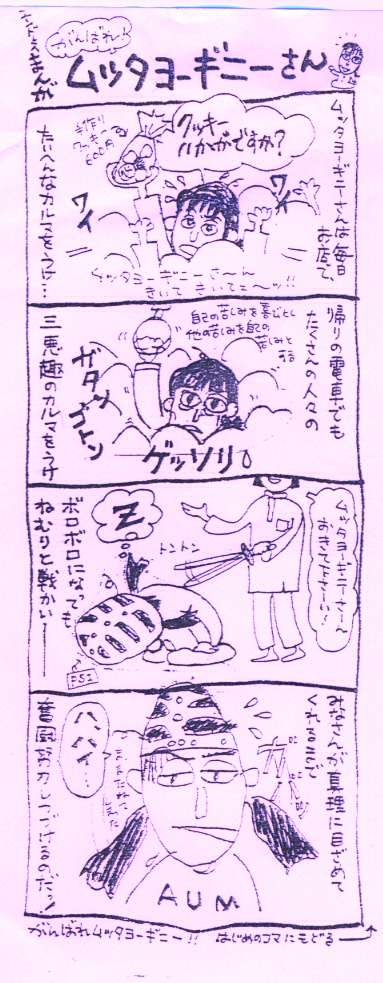 がんばれ!
ムッタヨーギニーさん
ムッタヨーギニーさんは毎日
お店で、
クッキー
いかがですか?
手作り
クッキー
600円
ワイ
ワイ
ムッタヨーギニーさ〜ん
きいて きいてェ〜ッ!!
たいへんなカルマをうけ…
帰りの電車でも
たくさんの人々の
自己の苦しみを喜びとし
他の苦しみを自己の
苦しみとする
ガタン
ゴトン
ゲッソリ
三悪趣のカルマをうけ
ムッタヨーギニーさ〜ん
おきてくださーい!
トントン
Z
ボロボロになっても
ねむりと戦かい——
PSI
みなさんが真理に目ざめて
くれるまで
ハ、ハイ…
AUM
奮闘努力しつづけるのだっ!
がんばれムッタヨーギニー!! はじめのコマにもどる